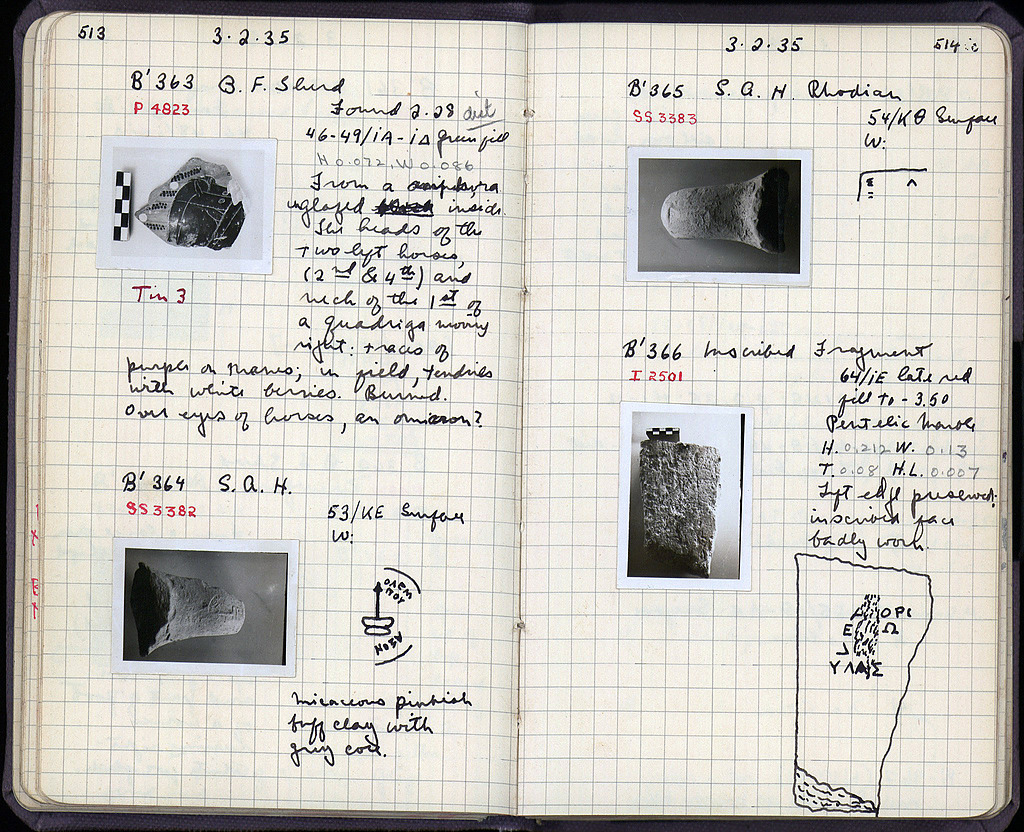 513
3·2·35
B'363 B. F. Sherd
P 4823
Found 2.28
46-49/ΙΑ-ΙΔ green fill
H 0.072, W 0.086
From a amphora
unglazed inside.
The heads of the
two left horses,
(2nd & 4th) and
neck of the 1st of
a quadriga moving
right: traces of
purple on manes; in field, tendrils
with white berries. Burned.
Over eyes of horses, an omicron?
Tin 3
B'364 S. A. H.
SS 3382
53/ΚΕ Surface
W:
micaceous pinkish
buff clay with
grey core.
3·2·35
514
B'365 S. A. H. Rhodian
SS 3383
54/ΚΘ Surface
W:
B'366 Inscribed Fragment
I 2501
64/ΙΕ late red
fill to -3.50
Pentelic Marble
H. 0.212 W. 0.13
T. 0.08 H.L. 0.007
Left edge preserved;
inscribed face
badly worn.
ΟΡΙ
Ε Ω
ΥΛΑΣ